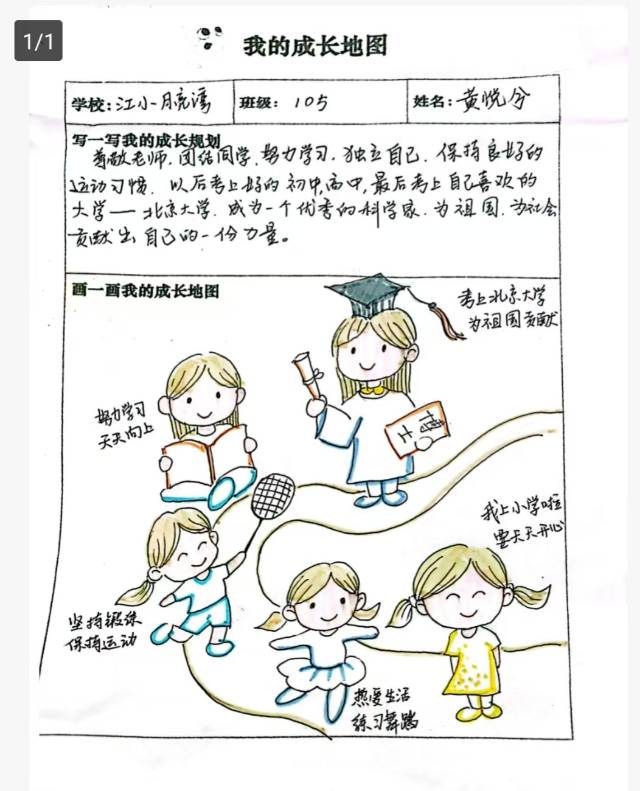 1/1
我的成长地图
学校:江小月亮湾 班级: 105 姓名:黄悦兮
写一写我的成长规划
尊敬老师,团结同学,努力学习,独立自己,保持良好的
运动习惯,以后考上好的初中,高中,最后考上自己喜欢的
大学——北京大学,成为一个优秀的科学家,为祖国,为社会
贡献出自己的一份力量。
画一画我的成长地图
考上北京大学
为祖国贡献
努力学习
天天向上
博士
我上小学啦
要天天开心
坚持锻炼
保持运动
热爱生活
练习舞蹈